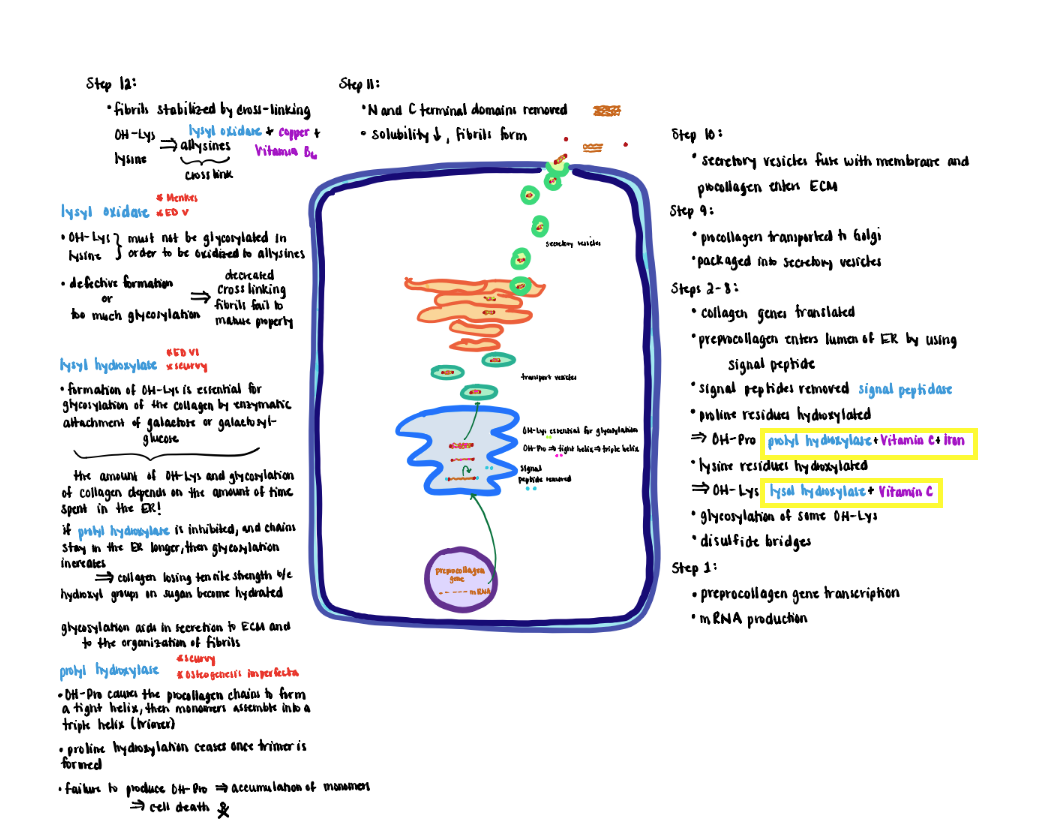 Step 12:
• fibrils stabilized by cross-linking
OH-Lys ⇒ lysyl oxidate + copper +
lysine allysines Vitamin B6
cross link
lysyl oxidate * Menkes
* ED V
• OH-Lys } must not be glycosylated in
lysine order to be oxidized to allysines
• defective formation
or
too much glycosylation
⇒ decreated
cross linking
fibrils fail to
mature property
lysyl hydroxylate * ED VI
* scurvy
• formation of OH-Lys is essential for
glycosylation of the collagen by enzymatic
attachment of galactose or galactosyl-
glucose
the amount of OH-Lys and glycosylation
of collagen depends on the amount of time
spent in the ER!
if prolyl hydroxylate is inhibited, and chains
stay in the ER longer, then glycosylation
increates
⇒ collagen losing tensile strength b/c
hydroxyl groups on sugar become hydrated
glycosylation aids in secretion to ECM and
to the organization of fibrils
prolyl hydroxylate * scurvy
* Osteogenesis imperfecta
• OH-Pro causes the procollagen chains to form
a tight helix, then monomers assemble into a
triple helix (trimer)
• proline hydroxylation ceases once trimer is
formed
• failure to produce OH-Pro ⇒ accumulation of monomers
⇒ cell death
Step 11:
• N and C terminal domains removed
• solubility ↓, fibrils form
secretory vesicles
transport vesicles
OH-Lys essential for glycosylation
OH-Pro ⇒ tight helix ⇒ triple helix
signal
peptide removed
preprocollagen
gene
mRNA
Step 10:
• secretory vesicles fuse with membrane and
procollagen enters ECM
Step 9:
• procollagen transported to Golgi
• packaged into secretory vesicles
Steps 2-8:
• collagen genes translated
• preprocollagen enters lumen of ER by using
signal peptide
• signal peptides removed signal peptidase
• proline residues hydroxylated
⇒ OH-Pro prolyl hydroxylase + Vitamin C + Iron
• lysine residues hydroxylated
⇒ OH-Lys lysol hydroxylase + Vitamin C
• glycosylation of some OH-Lys
• disulfide bridges
Step 1:
• preprocollagen gene transcription
• mRNA production